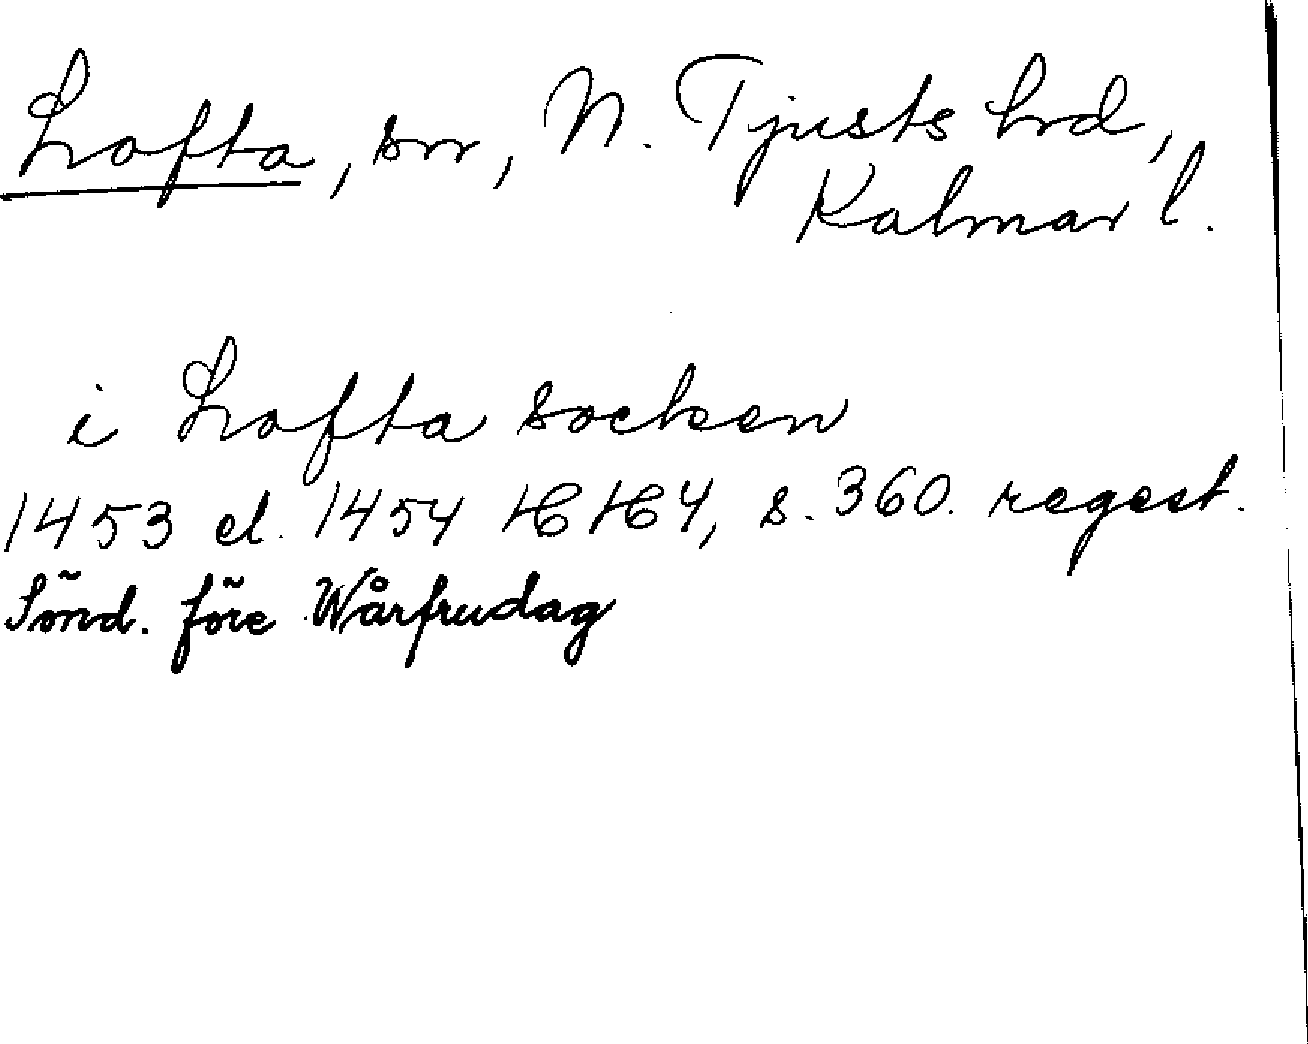 Lofta, sn, N. Tjusts hd,
Kalmar l.
i Lofta socken
1453 el. 1454 HH 4, s. 360. regest.
Sönd. före Wårfrudag